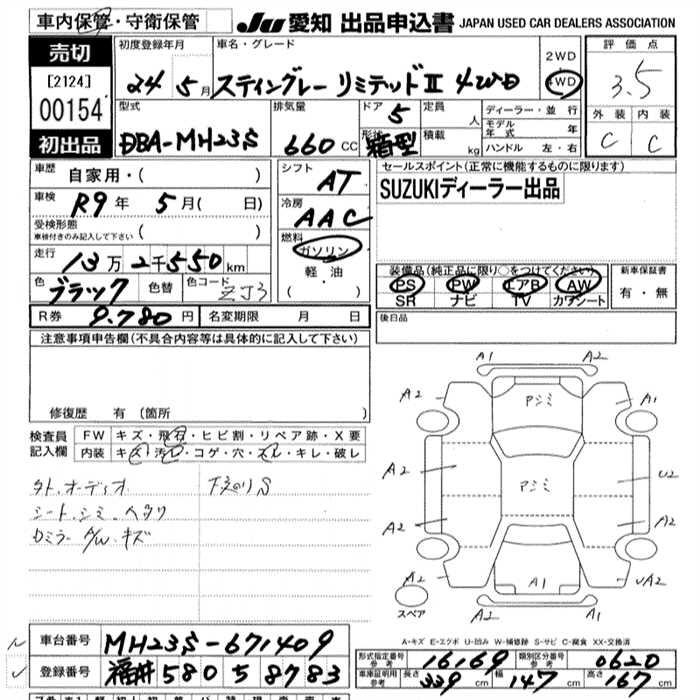 車内保管・守衛保管 JU 愛知 出品申込書 JAPAN USED CAR DEALERS ASSOCIATION
売切
[2124]
00154
初出品
初度登録年月 車名・グレード
24 5月 スティングレー リミテッドⅡ 4WD
2WD
4WD
評価点
3.5
外装 内装
C C
型式 排気量 ドア 定員 ディーラー・並行
DBA-MH23S 660 CC 5 人
形状 箱型 積載 kg
モデル年式 年
ハンドル 左・右
車歴 自家用・( )
車検 R9年 5月( 日)
受検形態
車検付きのみ記入して下さい ( )
走行 13万2千550km
色 ブラック 色替 色コード ZJ3
R券 9.780円 名変期限 月 日
シフト AT
冷房 AAC
燃料 ガソリン
軽・油
( ・ )
セールスポイント(正常に機能するものに限ります)
SUZUKIディーラー出品
装備品(純正品に限り○をつけてください)
PS PW エアB AW
SR ナビ TV カワシート
新車保証書
有・無
後日品
注意事項申告欄(不具合内容等は具体的に記入して下さい)
修復歴 有(箇所
検査員記入欄
FW キズ・飛石・ヒビ割・リペア跡・X要
内装 キズ・汚レ・コゲ・穴・スレ・キレ・破レ
タト、オーディオ 下廻りS
シート、シミ、ヘタリ
ロミラー A/W、キズ
A1 A2
A2 アシミ A1
A2 アシミ U2
A2 A2
A2 A1 UA2
スペア
A-キズ E-エクボ U-凹み W-補修跡 S-サビ C-腐食 XX-交換済
車台番号 MH23S-671409
登録番号 福井 580 5 8783
形式指定番号 参考 16169 類別区分番号 参考 0620
車庫証明用 参考 長さ 339 cm 幅 147 cm 高さ 167 cm